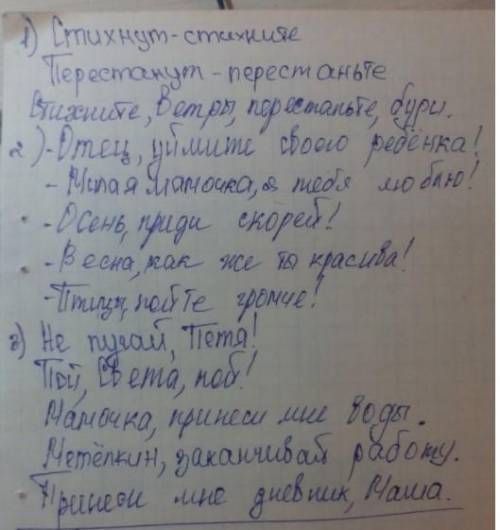 1) Стихнут - стихните
Перестанут - перестаньте
Стихните, Ветры, перестаньте, бури.
2) - Отец, уймите своего ребёнка!
- Милая мамочка, я тебя люблю!
- Осень, приди скорей!
- Весна, как же ты красива!
- Птицы, пойте громче!
3) Не пугай, Петя!
Пой, Света, пой!
Мамочка, принеси мне воды.
Метёлкин, заканчивай работу.
Принеси мне дневник, Маша.